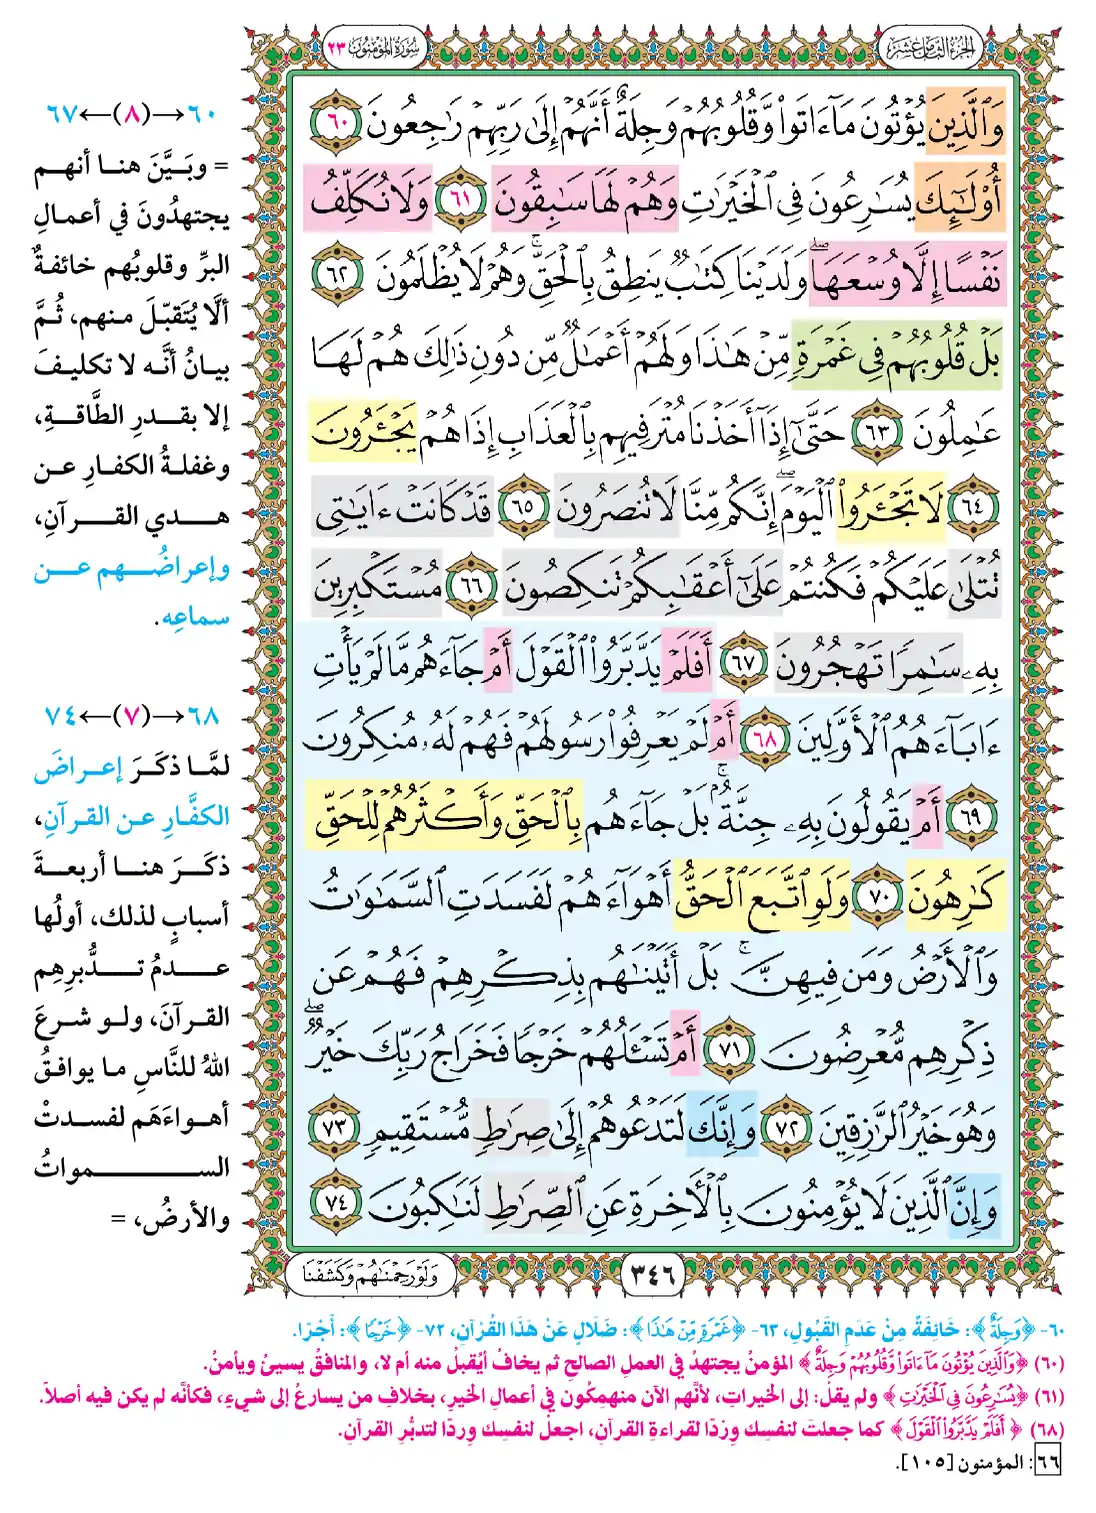 الجزء الثامن عشر
سورة المؤمنون ٢٣
وَٱلَّذِينَ يُؤۡتُونَ مَآ ءَاتَواْ وَّقُلُوبُهُمۡ وَجِلَةٌ أَنَّهُمۡ إِلَىٰ رَبِّهِمۡ رَٰجِعُونَ ٦٠
أُوْلَٰٓئِكَ يُسَٰرِعُونَ فِي ٱلۡخَيۡرَٰتِ وَهُمۡ لَهَا سَٰبِقُونَ ٦١ وَلَا نُكَلِّفُ
نَفۡسًا إِلَّا وُسۡعَهَاۖ وَلَدَيۡنَا كِتَٰبٞ يَنطِقُ بِٱلۡحَقِّۚ وَهُمۡ لَا يُظۡلَمُونَ ٦٢
بَلۡ قُلُوبُهُمۡ فِي غَمۡرَةٖ مِّنۡ هَٰذَا وَلَهُمۡ أَعۡمَٰلٞ مِّن دُونِ ذَٰلِكَ هُمۡ لَهَا
عَٰمِلُونَ ٦٣ حَتَّىٰٓ إِذَآ أَخَذۡنَا مُتۡرَفِيهِم بِٱلۡعَذَابِ إِذَا هُمۡ يَجۡـَٔرُونَ
٦٤ لَا تَجۡـَٔرُواْ ٱلۡيَوۡمَۖ إِنَّكُم مِّنَّا لَا تُنصَرُونَ ٦٥ قَدۡ كَانَتۡ ءَايَٰتِي
تُتۡلَىٰ عَلَيۡكُمۡ فَكُنتُمۡ عَلَىٰٓ أَعۡقَٰبِكُمۡ تَنكِصُونَ ٦٦ مُسۡتَكۡبِرِينَ
بِهِۦ سَٰمِرٗا تَهۡجُرُونَ ٦٧ أَفَلَمۡ يَدَّبَّرُواْ ٱلۡقَوۡلَ أَمۡ جَآءَهُم مَّا لَمۡ يَأۡتِ
ءَابَآءَهُمُ ٱلۡأَوَّلِينَ ٦٨ أَمۡ لَمۡ يَعۡرِفُواْ رَسُولَهُمۡ فَهُمۡ لَهُۥ مُنكِرُونَ
٦٩ أَمۡ يَقُولُونَ بِهِۦ جِنَّةُۢۚ بَلۡ جَآءَهُم بِٱلۡحَقِّ وَأَكۡثَرُهُمۡ لِلۡحَقِّ
كَٰرِهُونَ ٧٠ وَلَوِ ٱتَّبَعَ ٱلۡحَقُّ أَهۡوَآءَهُمۡ لَفَسَدَتِ ٱلسَّمَٰوَٰتُ
وَٱلۡأَرۡضُ وَمَن فِيهِنَّۚ بَلۡ أَتَيۡنَٰهُم بِذِكۡرِهِمۡ فَهُمۡ عَن
ذِكۡرِهِم مُّعۡرِضُونَ ٧١ أَمۡ تَسۡـَٔلُهُمۡ خَرۡجٗا فَخَرَاجُ رَبِّكَ خَيۡرٞۖ
وَهُوَ خَيۡرُ ٱلرَّٰزِقِينَ ٧٢ وَإِنَّكَ لَتَدۡعُوهُمۡ إِلَىٰ صِرَٰطٖ مُّسۡتَقِيمٖ ٧٣
وَإِنَّ ٱلَّذِينَ لَا يُؤۡمِنُونَ بِٱلۡأٓخِرَةِ عَنِ ٱلصِّرَٰطِ لَنَٰكِبُونَ ٧٤
٣٤٦
وَلَوۡ رَحِمۡنَٰهُمۡ وَكَشَفۡنَا
٦٠→(٨)←٦٧
= وبَيَّنَ هنا أنهم
يجتهدُونَ في أعمالِ
البرِّ وقلوبُهم خائفةٌ
ألَّا يُتَقبّلَ منهم، ثُمَّ
بيانُ أنَّه لا تكليفَ
إلا بقدرِ الطَّاقةِ،
وغفلةُ الكفارِ عن
هدي القرآنِ،
وإعراضُهم عن
سماعِه.
٦٨→(٧)←٧٤
لمَّا ذكَرَ إعراضَ
الكفَّارِ عن القرآنِ،
ذكَرَ هنا أربعةَ
أسبابٍ لذلك، أولُها
عدمُ تدُّبرِهِم
القرآنَ، ولو شرعَ
اللهُ للنَّاسِ ما يوافقُ
أهواءَهَم لفسدتْ
السمواتُ
والأرضُ، =
٦٠- ﴿وَجِلَةٌ﴾: خَائِفَةٌ مِنْ عَدَمِ القَبُولِ، ٦٣- ﴿غَمْرَةٍ مِّنْ هَٰذَا﴾: ضَلَالٍ عَنْ هَذَا القُرْآنِ، ٧٢- ﴿خَرْجًا﴾: أَجْرًا.
(٦٠) ﴿وَٱلَّذِينَ يُؤۡتُونَ مَآ ءَاتَواْ وَّقُلُوبُهُمۡ وَجِلَةٌ﴾ المؤمنُ يجتهدُ في العملِ الصالحِ ثم يخافُ أيُقبلُ منه أم لا، والمنافقُ يسيئُ ويأمنُ.
(٦١) ﴿يُسَٰرِعُونَ فِي ٱلۡخَيۡرَٰتِ﴾ ولم يقلْ: إلى الخيراتِ، لأنَّهم الآن منهمِكُون في أعمالِ الخيرِ، بخلافِ من يسارعُ إلى شيءٍ، فكأنَّه لم يكن فيه أصلاً.
(٦٨) ﴿أَفَلَمۡ يَدَّبَّرُواْ ٱلۡقَوۡلَ﴾ كما جعلتَ لنفسِك وِرْدًا لقراءةِ القرآنِ، اجعلْ لنفسِك وِردًا لتدبُّرِ القرآنِ.
٦٦: المؤمنون [١٠٥].